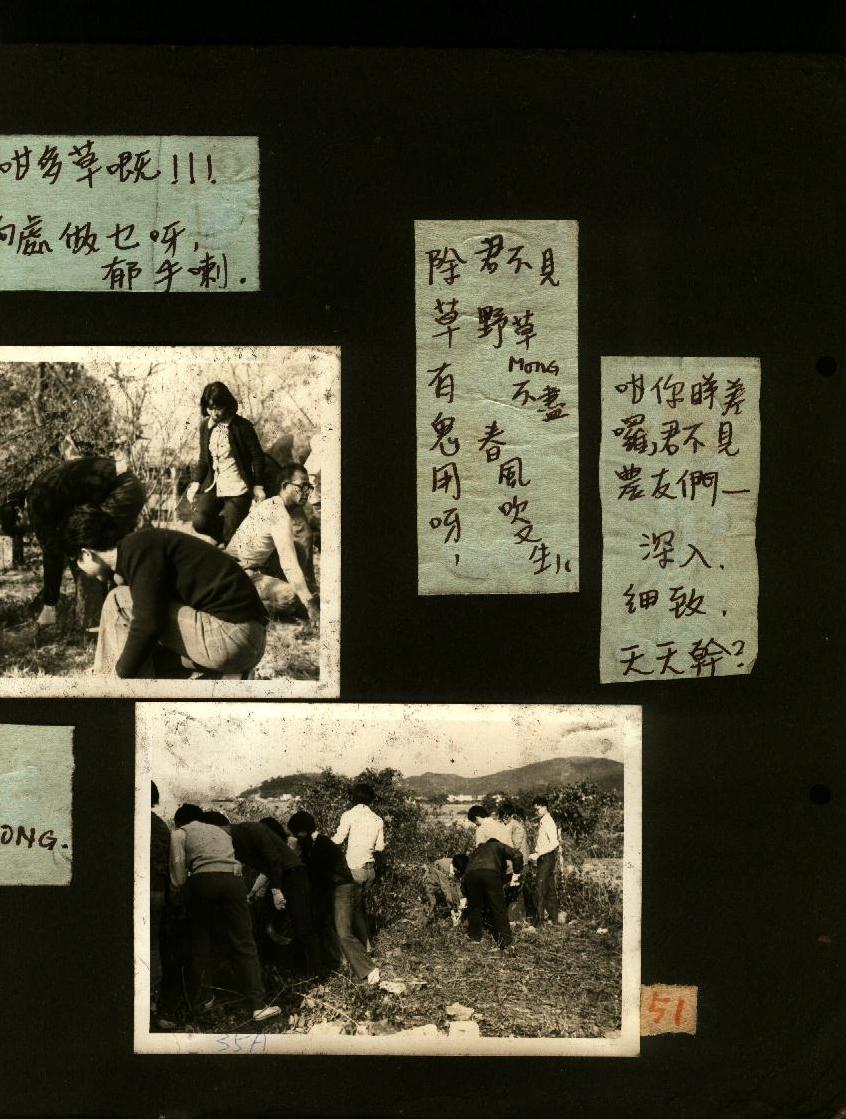 咁多草嘅!!!
處做乜呀,
郁手喇.
除草有鬼用呀,
君不見
野草MONG不盡
春風吹又生!!
咁你睇差
囉,君不見
農友們—
深入.
細致.
天天幹?
ONG.
51
35A